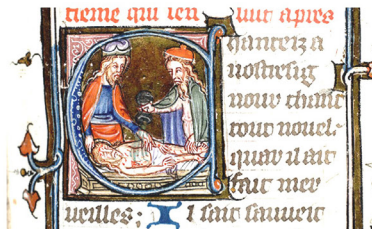 tieme qui uit apres
Chanteiz a
nostre sig
nour chant
tout nouel
quar il ait
fait mer
ueilles; Il